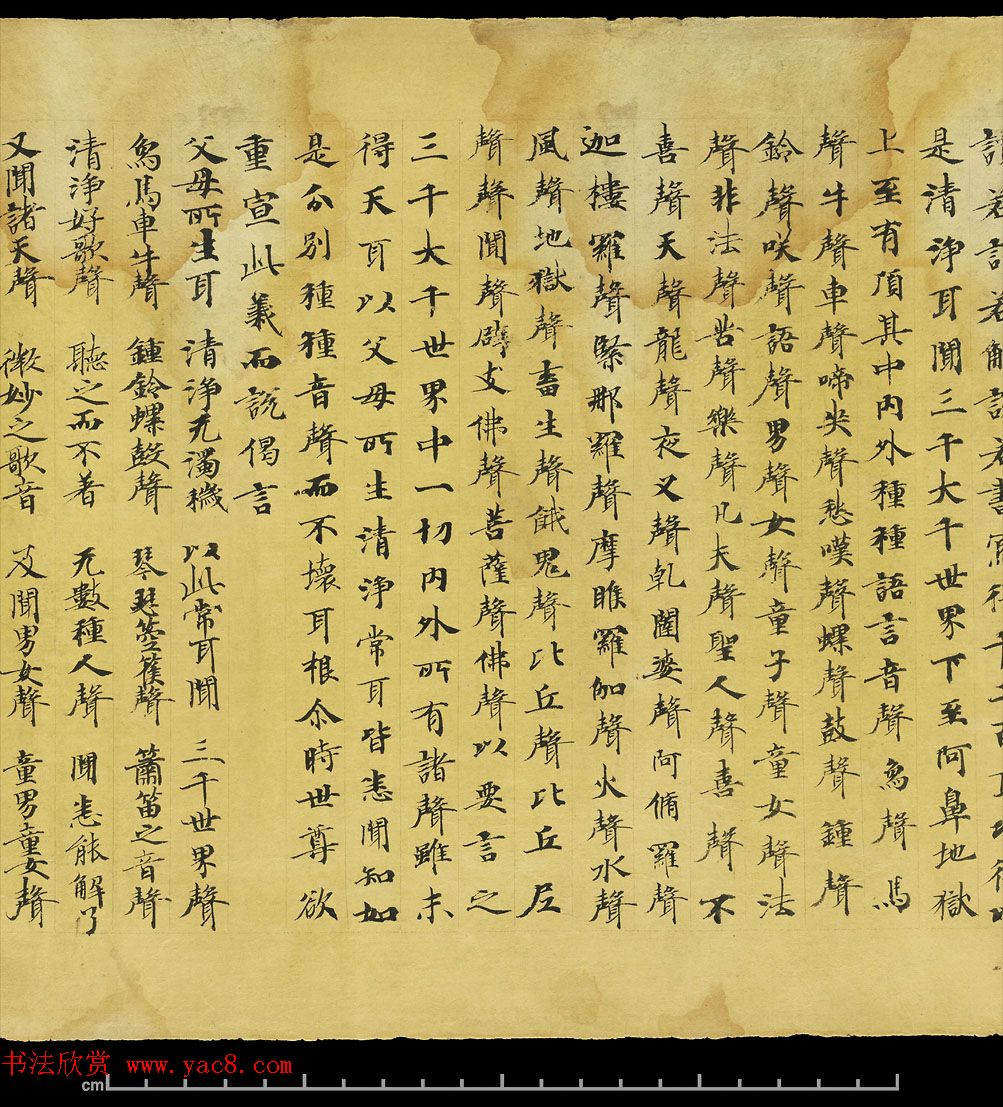 若解説若書寫得千二百
是清淨耳聞三千大千世界下至阿鼻地獄
上至有頂其中内外種種語言音聲象聲馬
聲牛聲車聲啼哭聲愁嘆聲螺聲鼓聲鍾聲
鈴聲咲聲語聲男聲女聲童子聲童女聲法
聲非法聲苦聲樂聲凡夫聲聖人聲喜聲不
喜聲天聲龍聲夜叉聲乹闥婆聲阿脩羅聲
迦樓羅聲緊那羅聲摩睺羅伽聲火聲水聲
風聲地獄聲畜生聲餓鬼聲比丘聲比丘尼
聲聲聞聲辟支佛聲菩薩聲佛聲以要言之
三千大千世界中一切内外所有諸聲雖未
得天耳以父母所生清淨常耳皆悉聞知如
是分別種種音聲而不壞耳根尒時世尊欲
重宣此義而說偈言
父母所生耳 清淨无濁穢 以此常耳聞 三千世界聲
象馬車牛聲 鍾鈴螺鼓聲 琴瑟箜篌聲 簫笛之音聲
清淨好歌聲 聽之而不著 无數種人聲 聞悉能解了
又聞諸天聲 微妙之歌音 及聞男女聲 童男童女聲
书法欣赏 www.yac8.com
cm